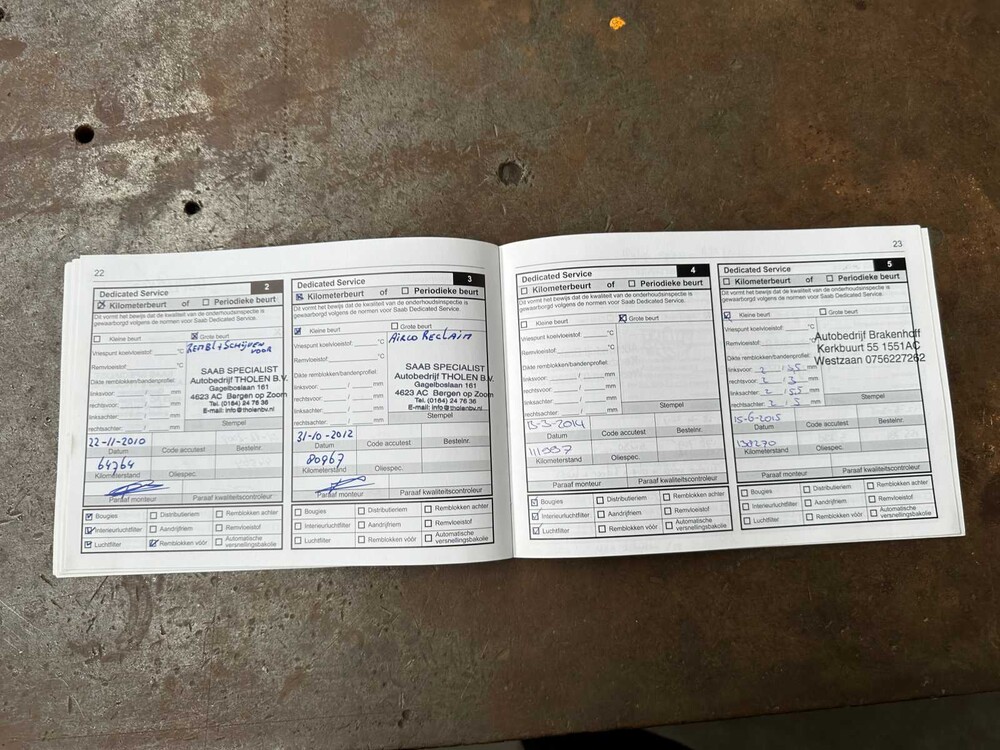 22
Dedicated Service 2
Kilometerbeurt of Periodieke beurt
Dit vormt het bewijs dat de kwaliteit van de onderhoudsinspectie is
gewaarborgd volgens de normen voor Saab Dedicated Service.
Kleine beurt Grote beurt
Vriespunt koelvloeistof: °C
REMBL + SCHIJVEN
VOOR
Remvloeistof: °C
Dikte remblokken/bandenprofiel:
linksvoor: / mm
rechtsvoor: / mm
linksachter: / mm
rechtsachter: / mm
SAAB SPECIALIST
Autobedrijf THOLEN B.V.
Gagelboslaan 161
4623 AC Bergen op Zoom
Tel. (0164) 24 76 36
E-mail: info@tholenbv.nl
Stempel
22-11-2010
Datum Code accutest Bestelnr.
64764
Kilometerstand Oliespec.
Paraaf monteur Paraaf kwaliteitscontroleur
Bougies Distributieriem Remblokken achter
Interieurluchtfilter Aandrijfriem Remvloeistof
Luchtfilter Remblokken vóór Automatische
versnellingsbakolie
Dedicated Service 3
Kilometerbeurt of Periodieke beurt
Dit vormt het bewijs dat de kwaliteit van de onderhoudsinspectie is
gewaarborgd volgens de normen voor Saab Dedicated Service.
Kleine beurt Grote beurt
AIRCO RECLAIM
Vriespunt koelvloeistof: °C
Remvloeistof: °C
Dikte remblokken/bandenprofiel:
linksvoor: / mm
rechtsvoor: / mm
linksachter: / mm
rechtsachter: / mm
SAAB SPECIALIST
Autobedrijf THOLEN B.V.
Gagelboslaan 161
4623 AC Bergen op Zoom
Tel. (0164) 24 76 36
E-mail: info@tholenbv.nl
Stempel
31-10-2012
Datum Code accutest Bestelnr.
80967
Kilometerstand Oliespec.
Paraaf monteur Paraaf kwaliteitscontroleur
Bougies Distributieriem Remblokken achter
Interieurluchtfilter Aandrijfriem Remvloeistof
Luchtfilter Remblokken vóór Automatische
versnellingsbakolie
23
Dedicated Service 4
Kilometerbeurt of Periodieke beurt
Dit vormt het bewijs dat de kwaliteit van de onderhoudsinspectie is
gewaarborgd volgens de normen voor Saab Dedicated Service.
Kleine beurt Grote beurt
Vriespunt koelvloeistof: °C
Remvloeistof: °C
Dikte remblokken/bandenprofiel:
linksvoor: / mm
rechtsvoor: / mm
linksachter: / mm
rechtsachter: / mm
Stempel
13-3-2014
Datum Code accutest Bestelnr.
Kilometerstand Oliespec.
Paraaf monteur Paraaf kwaliteitscontroleur
Bougies Distributieriem Remblokken achter
Interieurluchtfilter Aandrijfriem Remvloeistof
Luchtfilter Remblokken vóór Automatische
versnellingsbakolie
Dedicated Service 5
Kilometerbeurt of Periodieke beurt
Dit vormt het bewijs dat de kwaliteit van de onderhoudsinspectie is
gewaarborgd volgens de normen voor Saab Dedicated Service.
Kleine beurt Grote beurt
Vriespunt koelvloeistof: °C
Remvloeistof: °C
Autobedrijf Brakenhoff
Kerkbuurt 55 1551AC
Westzaan 0756227262
Dikte remblokken/bandenprofiel:
linksvoor: / mm
rechtsvoor: 2 / 5 mm
linksachter: / mm
rechtsachter: 2 / 5 mm
Stempel
15-6-2015
Datum Code accutest Bestelnr.
Kilometerstand Oliespec.
Paraaf monteur Paraaf kwaliteitscontroleur
Bougies Distributieriem Remblokken achter
Interieurluchtfilter Aandrijfriem Remvloeistof
Luchtfilter Remblokken vóór Automatische
versnellingsbakolie